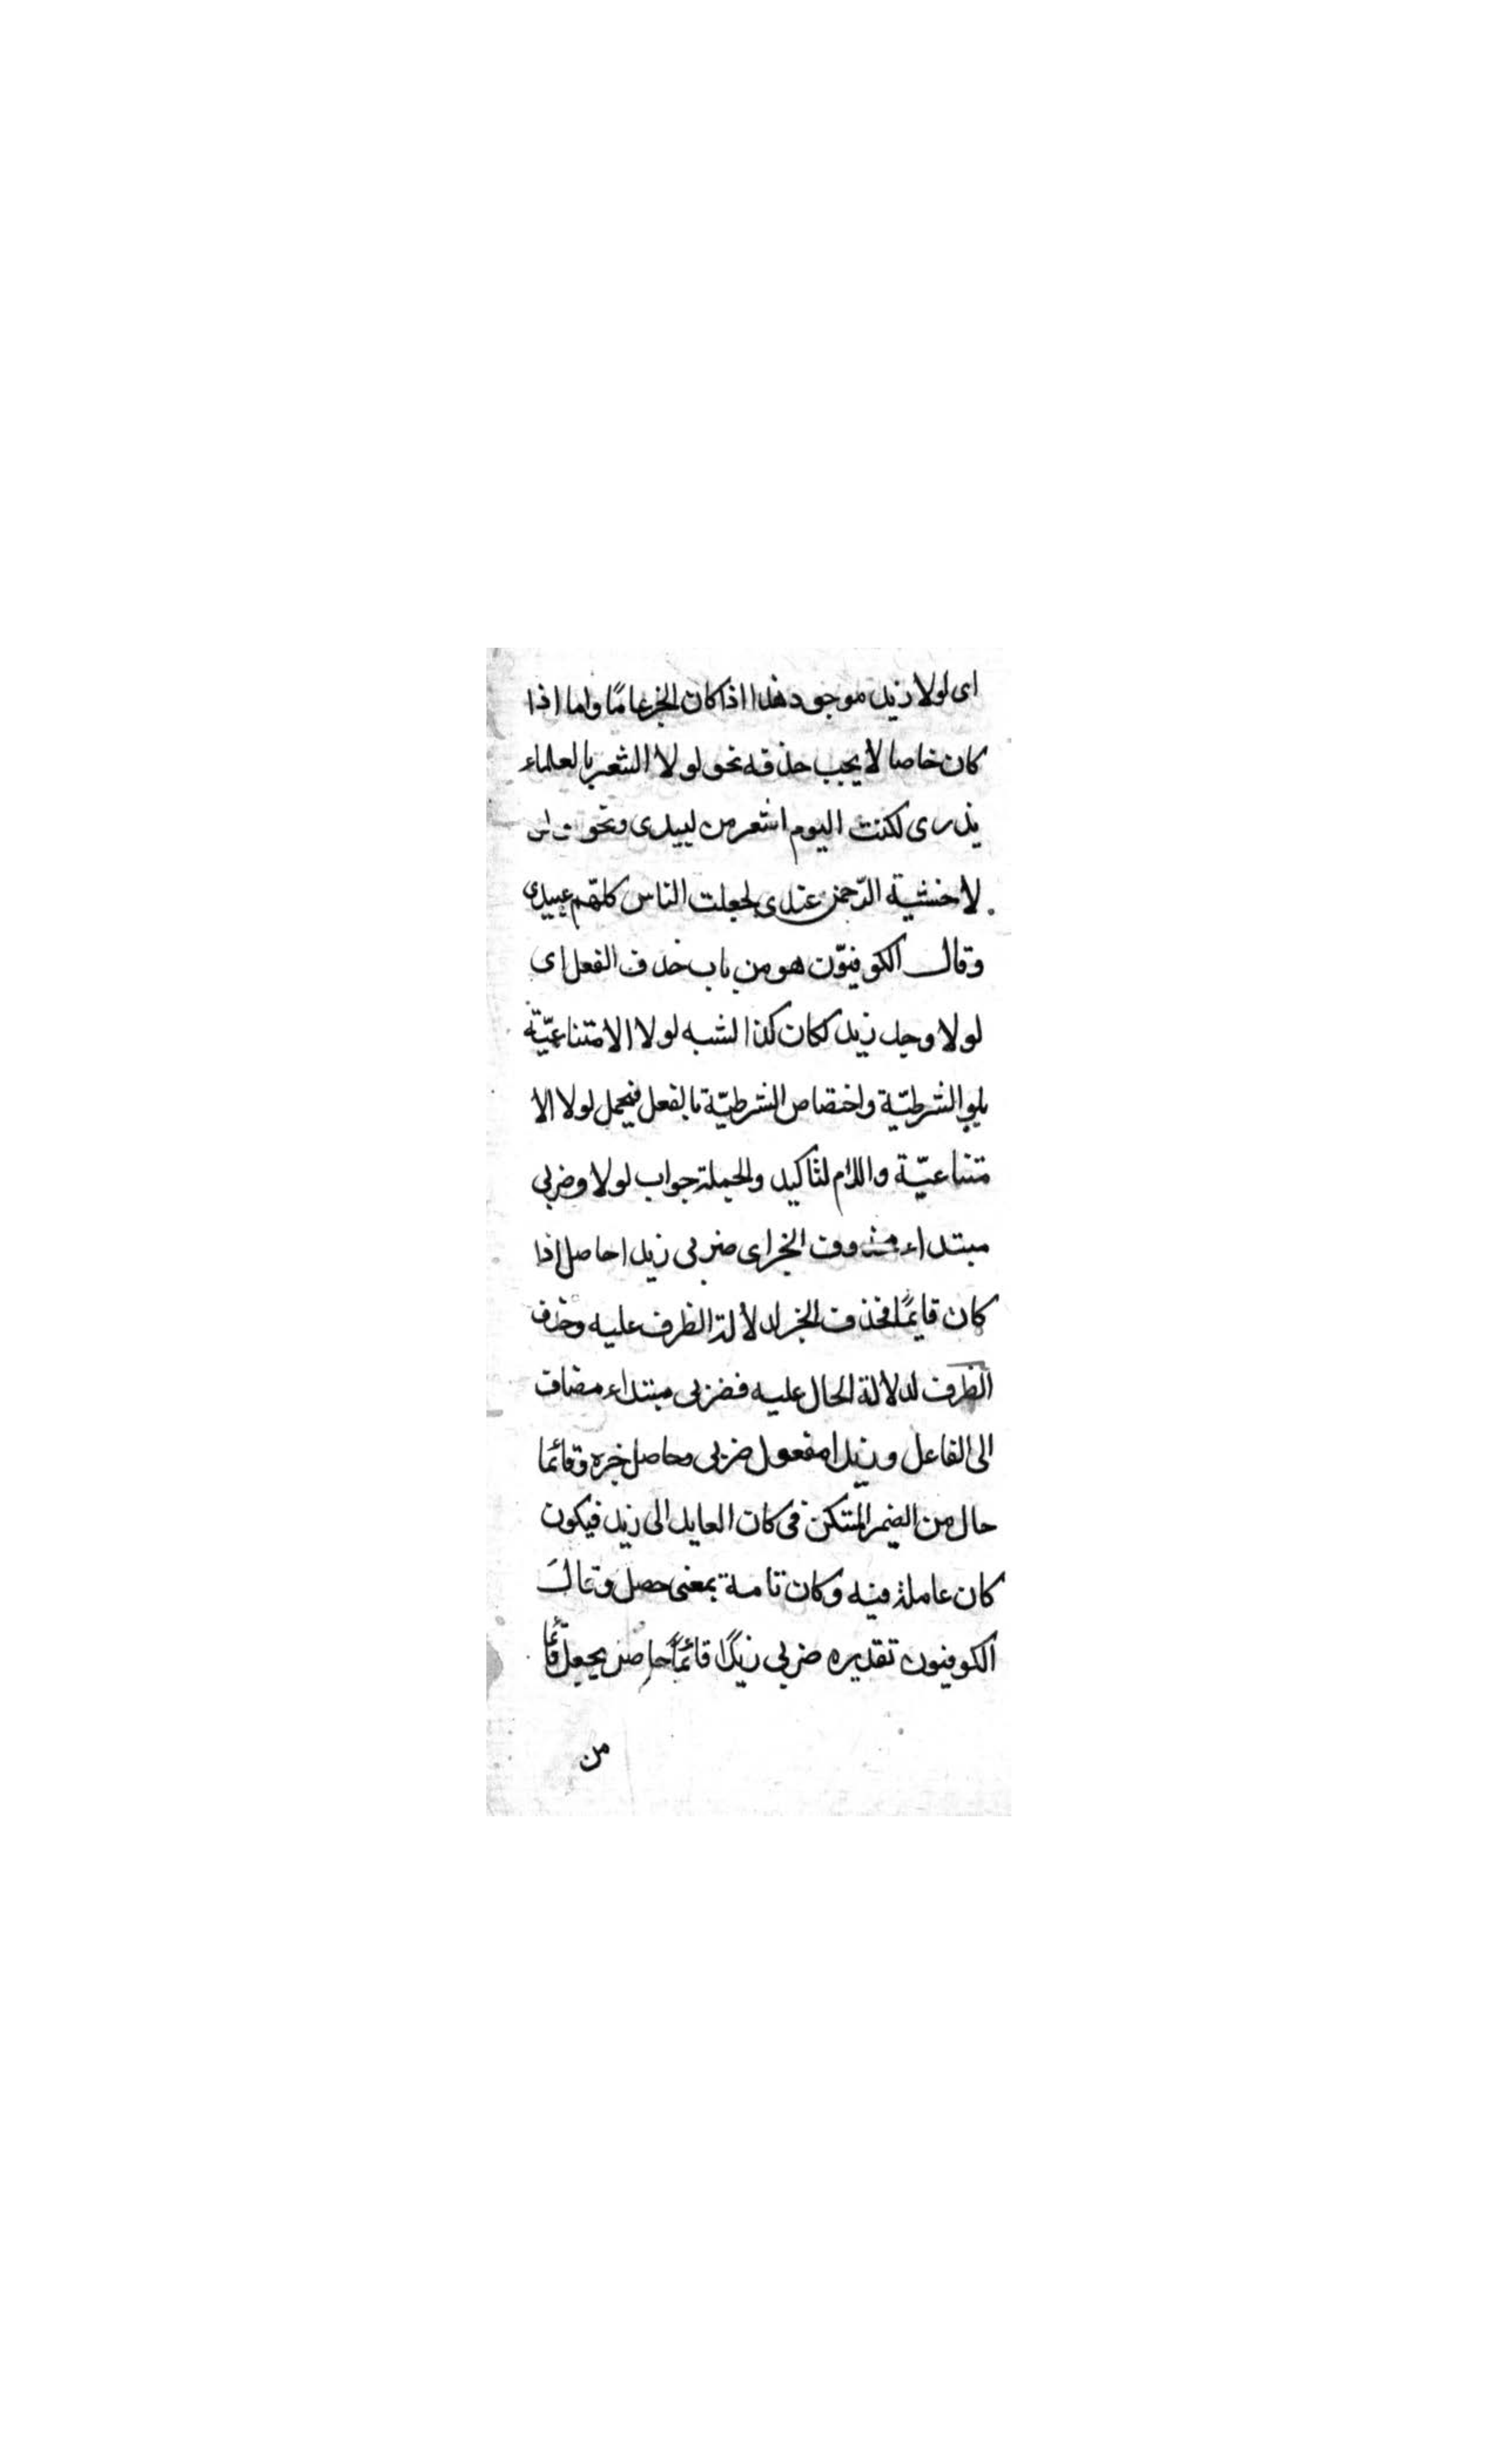 اى لولا زيد موجود هذا اذا كان الخبر عامًا واما اذا
كان خاصا لا يجب حذفه نحو لولا الشعر بالعلماء
يذرى لكنت اليوم اشعر من لبيدى ونحو
لا خشية الرّحمن عندى لجعلت الناس كلهّم عبيدى
وقال الكوفيّون هو من باب حذف الفعل اى
لولا وجد زيد لكان كذا لشبه لولا الامتناعيّة
بلو الشرطيّة واختصاص الشرطيّة بالفعل فيحمل لولا الا
متناعيّة واللام لتاكيد والجملة جواب لولا وضربى
مبتداء محذوف الخبر اى ضربى زيدا حاصل اذا
كان قايمًا فحذف الخبر لدلالة الظرف عليه وحذف
الظرف لدلالة الحال عليه فضربى مبتداء مضاف
الى الفاعل وزيدا مفعول ضربى وحاصل خبره وقائما
حال من الضمير المستكن فى كان العايد الى زيد فيكون
كان عاملة فيه وكان تامة بمعنى حصل وقال
الكوفيون تقديره ضربى زيدًا قائمًا حاصل بجعل قائما
من